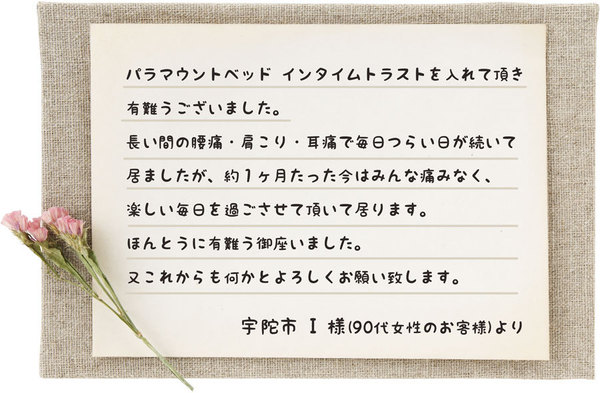 パラマウントベッド インタイムトラストを入れて頂き
有難うございました。
長い間の腰痛・肩こり・耳痛で毎日つらい日が続いて
居ましたが、約1ヶ月たった今はみんな痛みなく、
楽しい毎日を過ごさせて頂いて居ります。
ほんとうに有難う御座いました。
又これからも何かとよろしくお願い致します。
宇陀市 I 様(90代女性のお客様)より